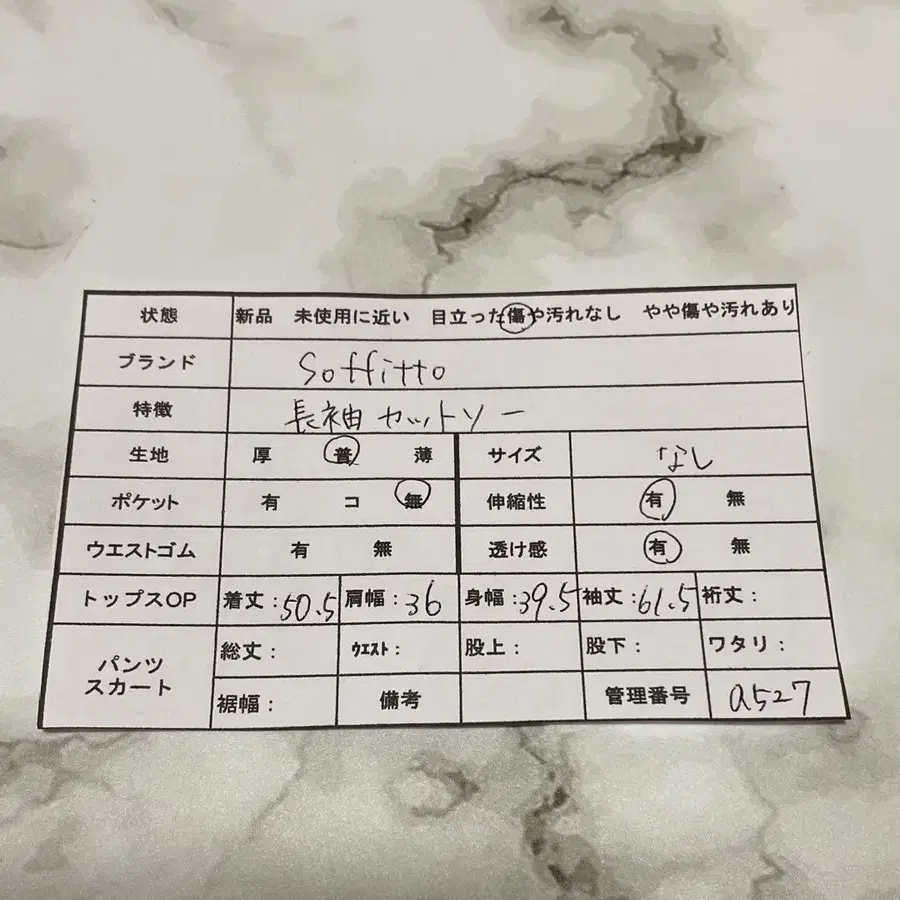 状態 新品 未使用に近い 目立った傷や汚れなし やや傷や汚れあり
ブランド Soffitto
特徴 長袖カットソー
生地 厚 普 薄 サイズ なし
ポケット 有 コ 無 伸縮性 有 無
ウエストゴム 有 無 透け感 有 無
トップスOP 着丈:50.5 肩幅:36 身幅:39.5 袖丈:61.5 裄丈:
パンツ スカート 総丈: ウエスト: 股上: 股下: ワタリ:
裾幅: 備考 管理番号 a527